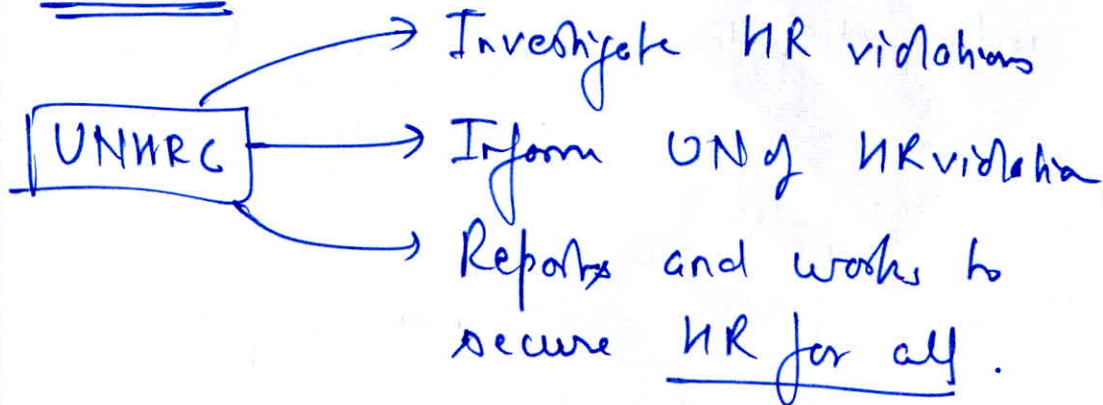 UNHRC
Investigate HR violations
Inform UN of HR violation
Reports and works to
secure HR for all.